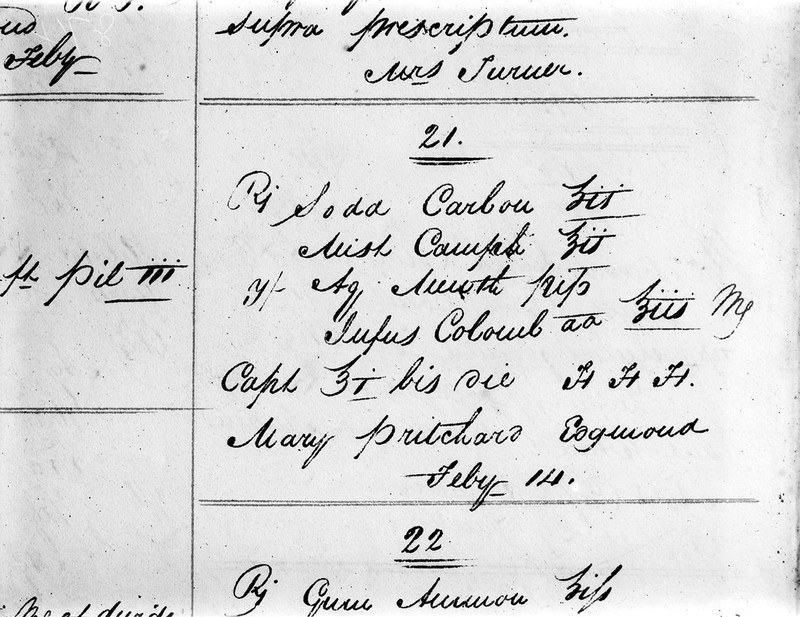 Feby
ft Pil iii
supra prescriptum.
Mrs Turner.
21.
Rx Soda Carbon ʒii
Mist Camph ℥ii
Aq Menth pip
Infus Colomb aa ℥iis Mg
Capt ℥i bis die Ft Ft Ft.
Mary Pritchard Edgmond
Feby 14.
22
Rx Gum Ammon ʒifs